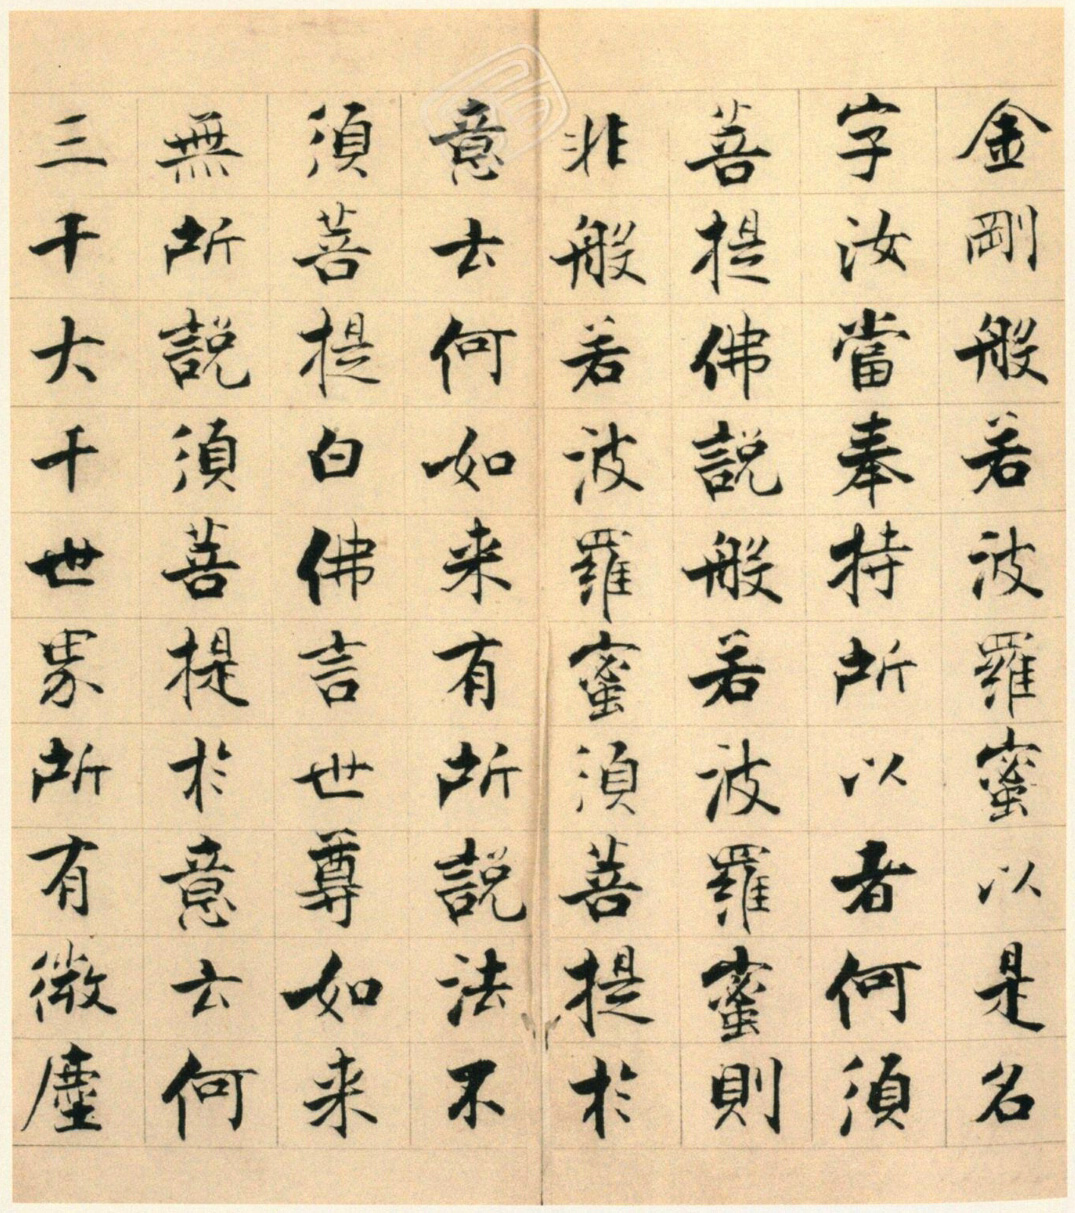 金剛般若波羅蜜以是名
字汝當奉持所以者何須
菩提佛説般若波羅蜜則
非般若波羅蜜須菩提於
意云何如来有所説法不
須菩提白佛言世尊如来
無所説須菩提於意云何
三千大千世界所有微塵